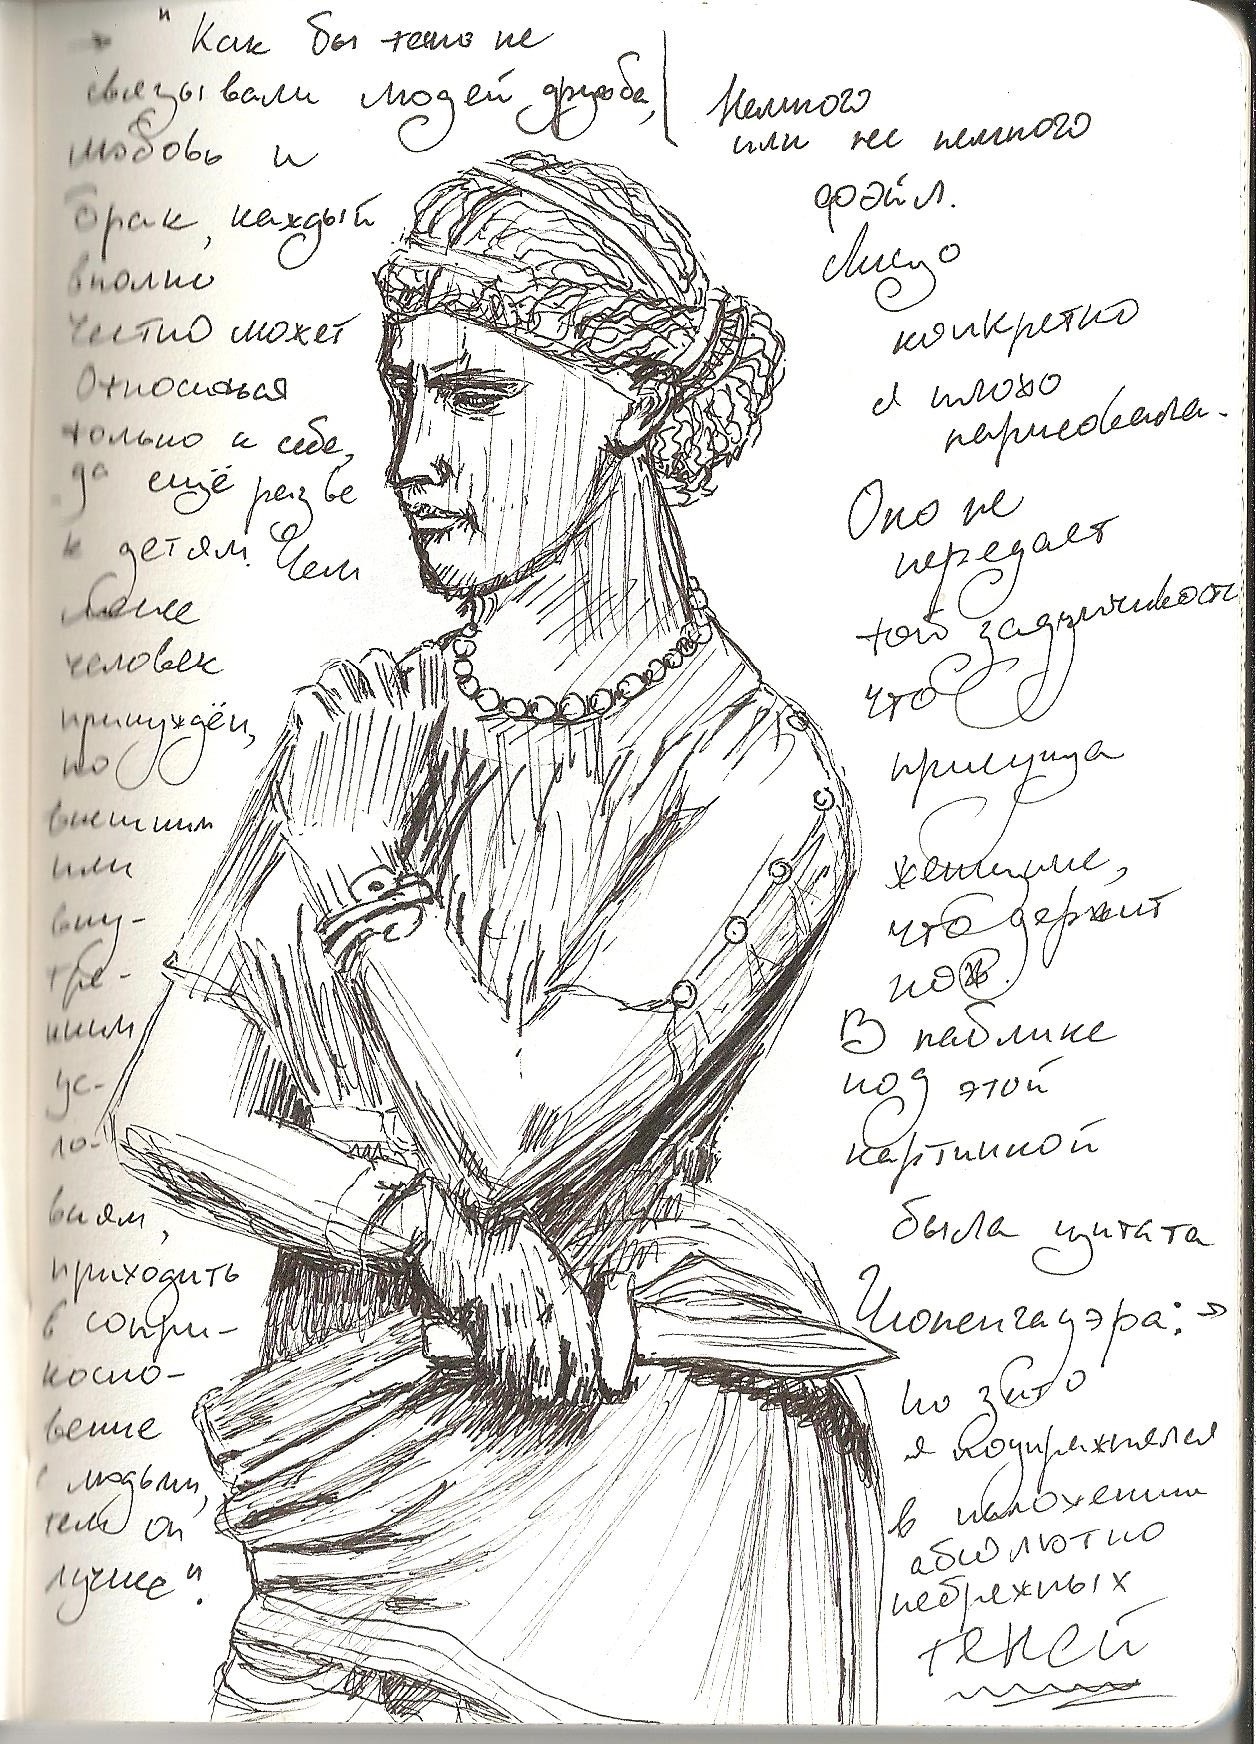 → "Как бы тесно не
связывали людей дружба,
любовь и
брак, каждый
вполне
честно может
относиться
только к себе,
да ещё разве
к детям. Чем
менее
человек
принуждён,
по
внешним
или
вну-
тре-
нним
ус-
ло-
виям,
приходить
в сопри-
косно-
вение
с людьми,
тем он
лучше".
Немного
или не немного
фэйл.
Лицо
конкретно
я плохо
нарисовала.
Оно не
передаёт
той задумчивости
что
присуща
женщине,
что держит
нож.
В паблике
под этой
картинкой
была цитата
Шопенгауэра: →
но зато
я поупражнялся
в наложении
абсолютно
небрежных
теней